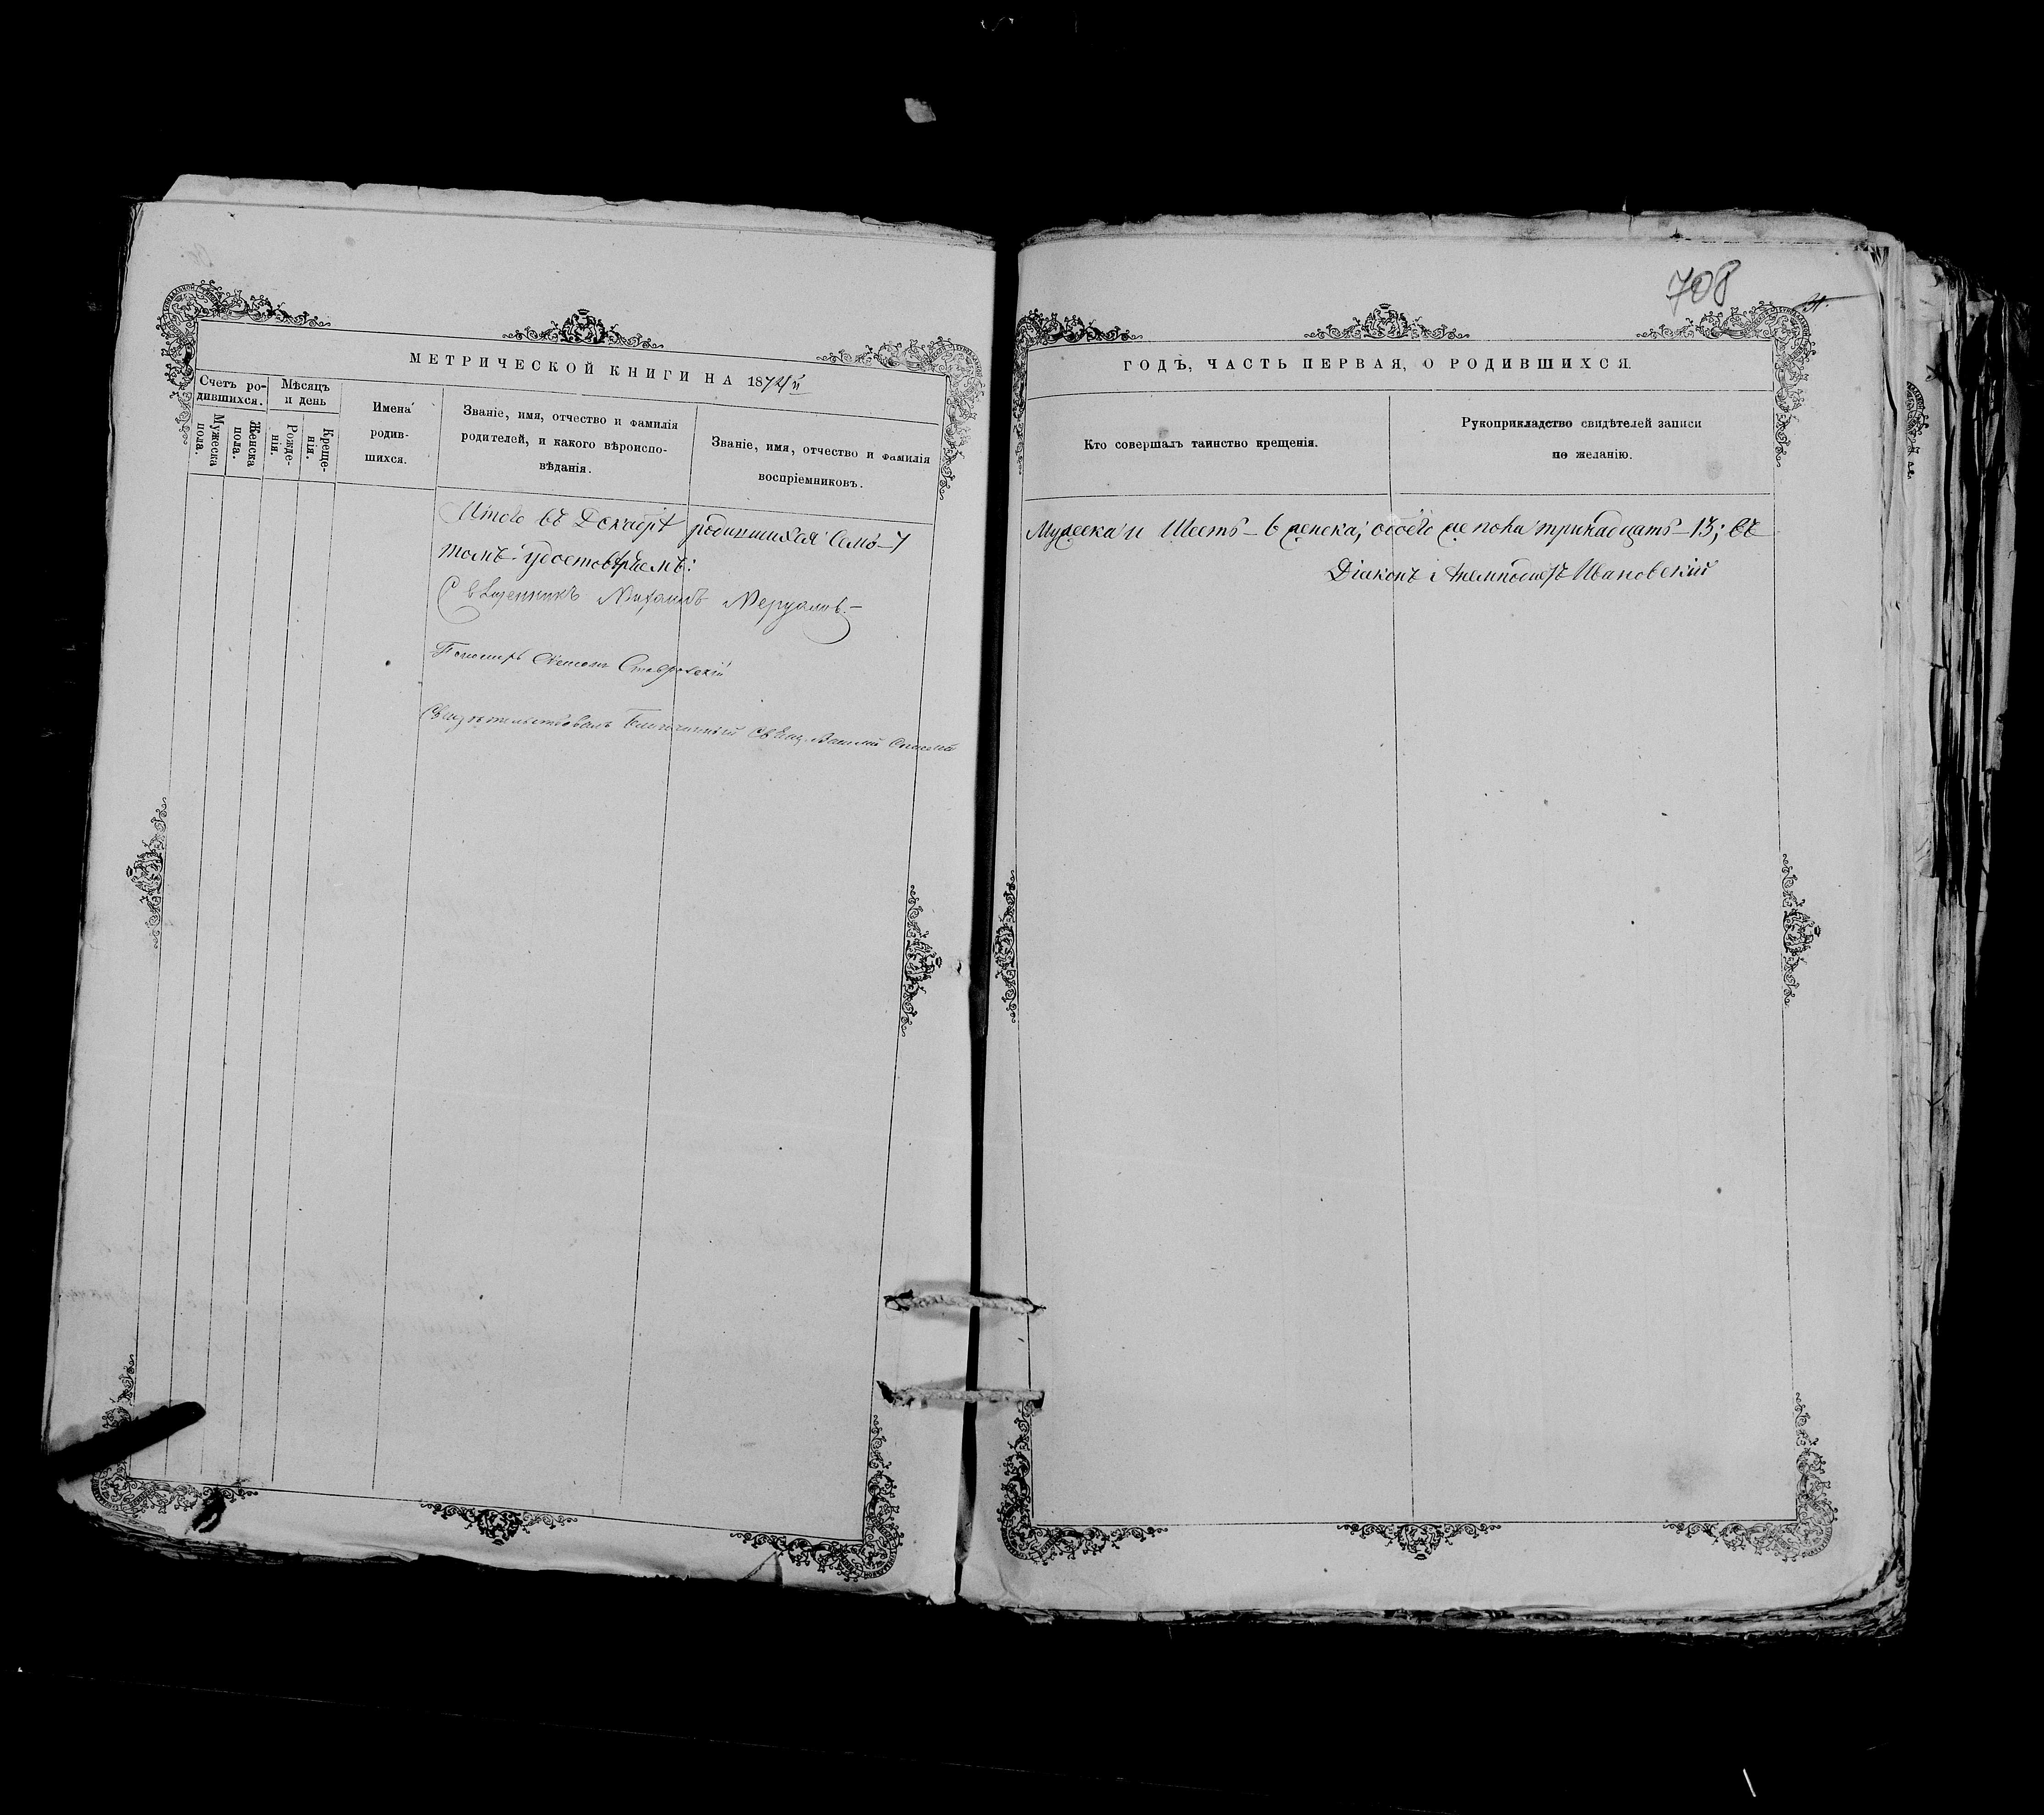 708
МЕТРИЧЕСКОЙ КНИГИ НА 1874й
ГОДЪ, ЧАСТЬ ПЕРВАЯ, О РОДИВШИХСЯ.
Счетъ ро-
дившихся.
Мужеска
пола.
Женска
пола.
Мѣсяцъ
и день
Рожде-
нія.
Креще-
нія.
Имена
родив-
шихся.
Званіе, имя, отчество и фамилія
родителей, и какого вѣроиспо-
вѣданія.
Званіе, имя, отчество и фамилія
воспріемниковъ.
Кто совершалъ таинство крещенія.
Рукоприкладство свидѣтелей записи
по желанію.
Итого въ Декабрѣ родившихся Семь-7
Мужеска и Шесть-6 женска; обоего же пола тринадцать-13; въ
томъ удостовѣряемъ:
Діаконъ Ивановскій
Священникъ Михаилъ
Ставровскій
Свидѣтельствовалъ Благочинный Свящ.